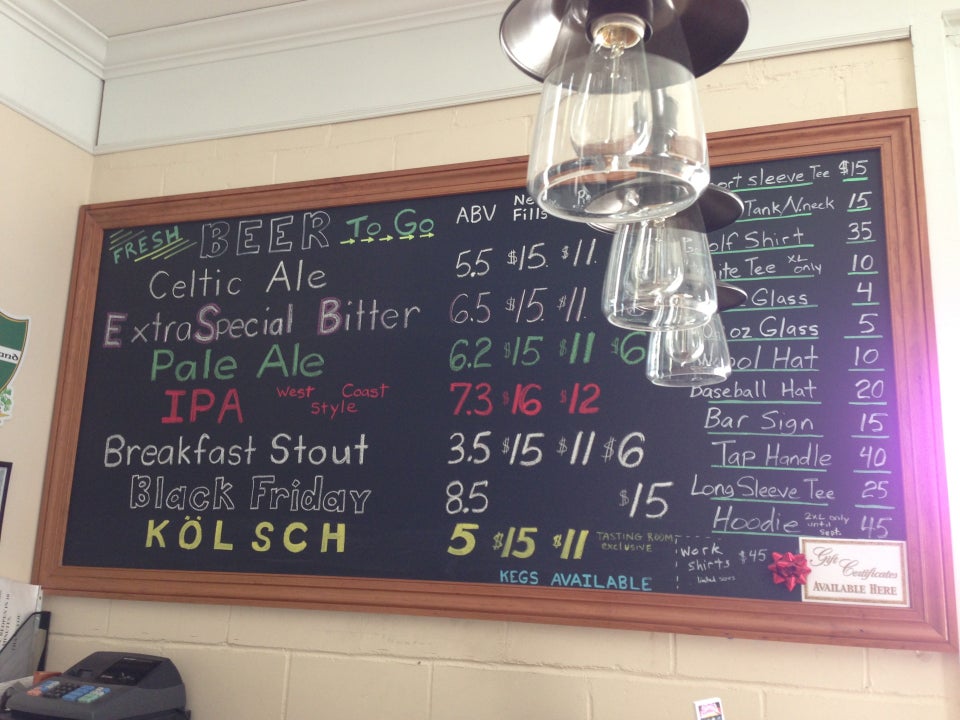 FRESH BEER To Go ABV
Fills
Celtic Ale 5.5 $15. $11.
Extra Special Bitter 6.5 $15. $11.
Pale Ale 6.2 $15 $11 $6
IPA West Coast Style 7.3 $16 $12
Breakfast Stout 3.5 $15 $11 $6
Black Friday 8.5 $15
KÖLSCH 5 $15 $11 TASTING ROOM exclusive
KEGS AVAILABLE
sleeve Tee $15
Tank/V.neck 15
Shirt 35
Tee XL only 10
Glass 4
oz Glass 5
Hat 10
Baseball Hat 20
Bar Sign 15
Tap Handle 40
Long Sleeve Tee 25
Hoodie 2XL only until Sept. 45
Work Shirts $45
limited sizes
Gift Certificates
AVAILABLE HERE